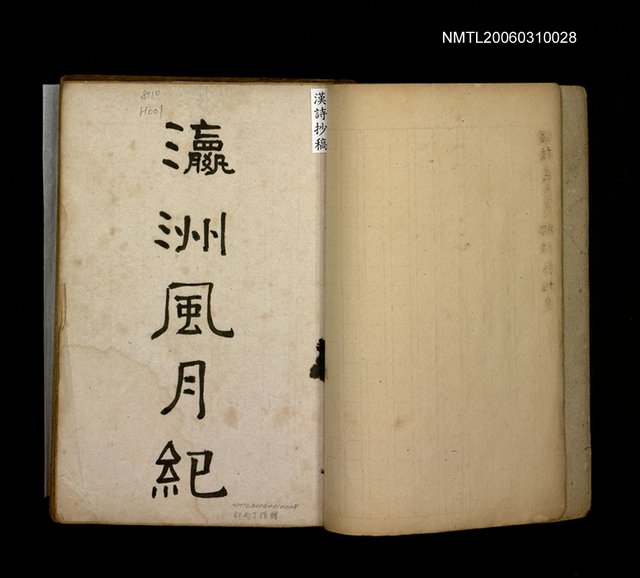 NMTL20060310028
8110
H001
漢詩抄稿
瀛洲風月紀
NMTL20060310028